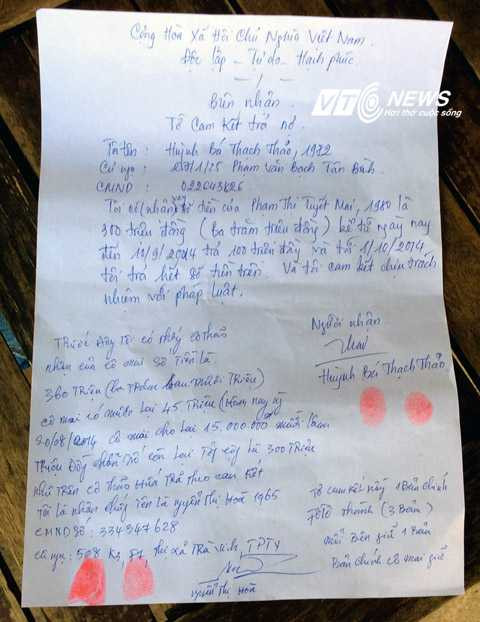 Cộng Hòa Xã Hội Chủ Nghĩa Việt Nam.
Độc lập - Tự do - Hạnh phúc
VTC NEWS
Hơi thở cuộc sống
Biên nhận
Tờ Cam Kết trả nợ.
Tôi tên : Huỳnh Bá Thạch Thảo, 1972
Cư ngụ : Phạm Văn Bạch Tân Bình
CMND :
Tôi có nhận số tiền của Phạm Thị Tuyết Mai, 1980 là
300 triệu đồng (ba trăm triệu đồng) kể từ ngày nay
đến 10/9/2014 trả 100 triệu đồng và tới 1/10/2014
tôi trả hết số tiền trên. Và tôi cam kết chịu trách
nhiệm với pháp luật.
Người nhận
Huỳnh Bá Thạch Thảo
Trước đây tôi có thấy cô thảo
nhận của cô mai số Tiền là
360 Triệu
cô mai có nhận Lại 45 Triệu (Hôm nay
20/08/2014 cô mai cho Lại 15.000.000 mười lăm
Triệu Đồng còn Lại là 300 Triệu
như Trên cô Thảo Hứa Trả theo cam Kết
Tôi là nhân chứng Tên là nguyễn Thị Hoà 1965
CMND Số: 334347628
cư ngụ: 508 K3, thị xã Trà Vinh,
nguyễn Thị Hoà
Tờ cam kết này 1 Bản chính
FOTO thành (3 Bản)
mỗi Bên giữ 1 Bản
Bản chính cô mai giữ